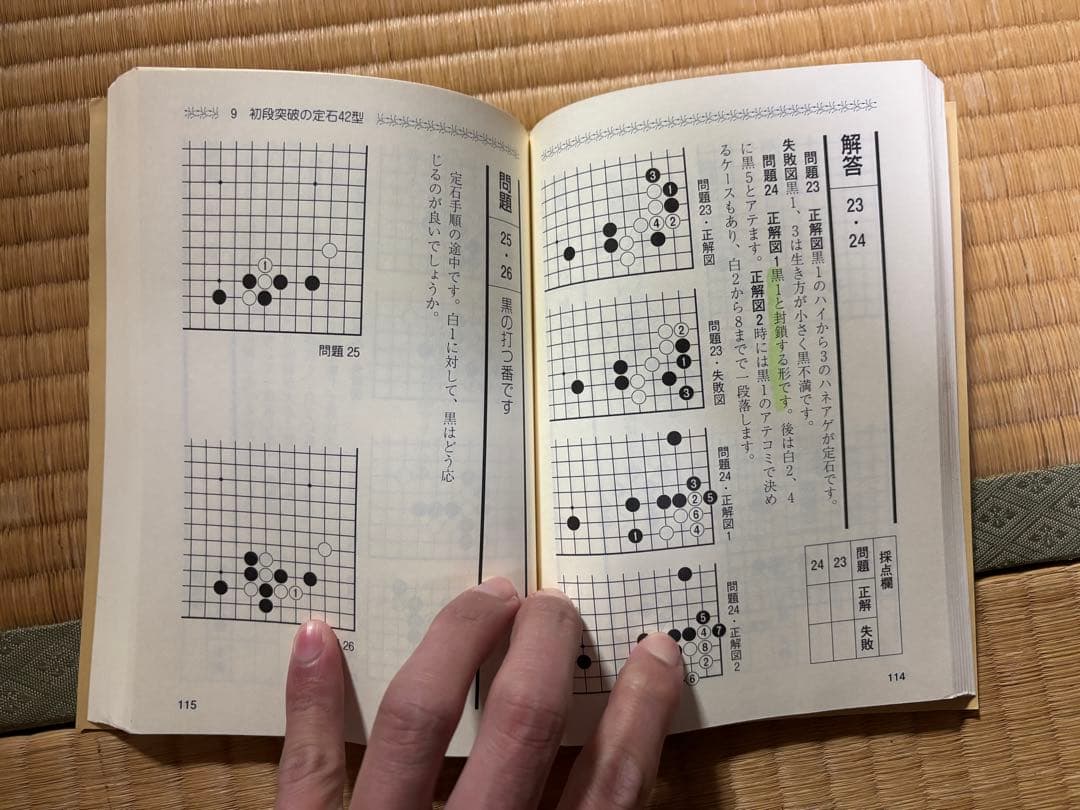 解答 23・24
問題23 正解図黒1のハイから3のハネアゲが定石です。
失敗図黒1、3は生き方が小さく黒不満です。
問題24 正解図1黒1と封鎖する形です。後は白2、4
に黒5とアテます。正解図2時には黒1のアテコミで決め
るケースもあり、白2から8までで一段落します。
採点欄
問題 正解 失敗
23
24
問題23・正解図
3
1
4 2
問題23・失敗図
2
1
3
問題24・正解図1
3
2 5
6
1 4
問題24・正解図2
5
4 7
8
2
6
114
9 初段突破の定石42型
問題 25・26 黒の打つ番です
定石手順の途中です。白1に対して、黒はどう応
じるのが良いでしょうか。
1
問題25
1
26
115